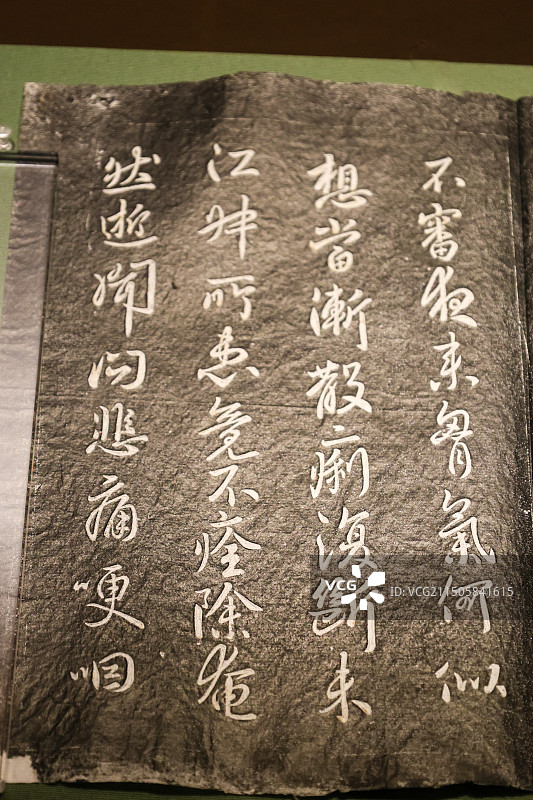 不審夜來胷氣何似
想當漸散痢復斷未
江妹所患竟不痊除奄
然逝聞問悲痛哽咽
VCG
ID: VCG211505841615